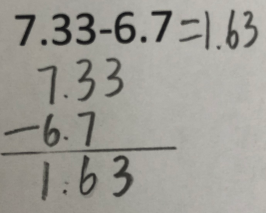 7.33-6.7=1.63
7.33
-6.7
1.63